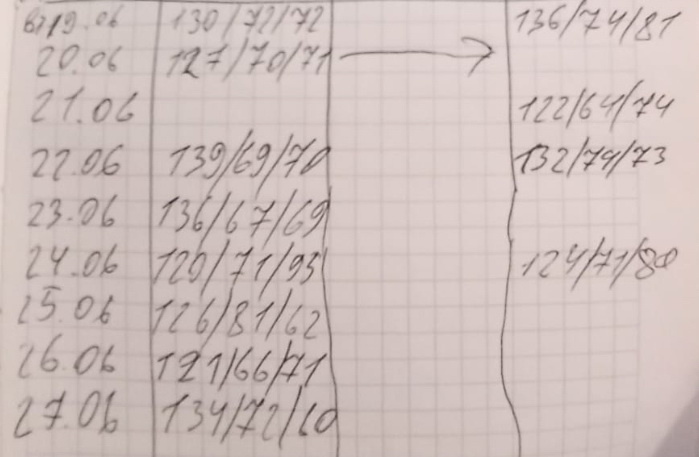 вт19.06 130/72/72 136/74/81
20.06 127/70/71 →
21.06 122/64/74
22.06 139/69/70 132/74/73
23.06 136/67/69
24.06 129/71/93 124/71/80
25.06 126/81/62
26.06 121/66/71
27.06 134/72/60